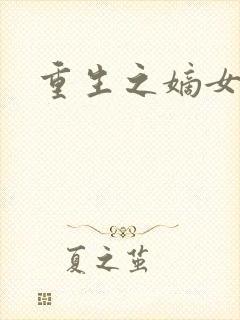 重生之嫡女
夏之茧